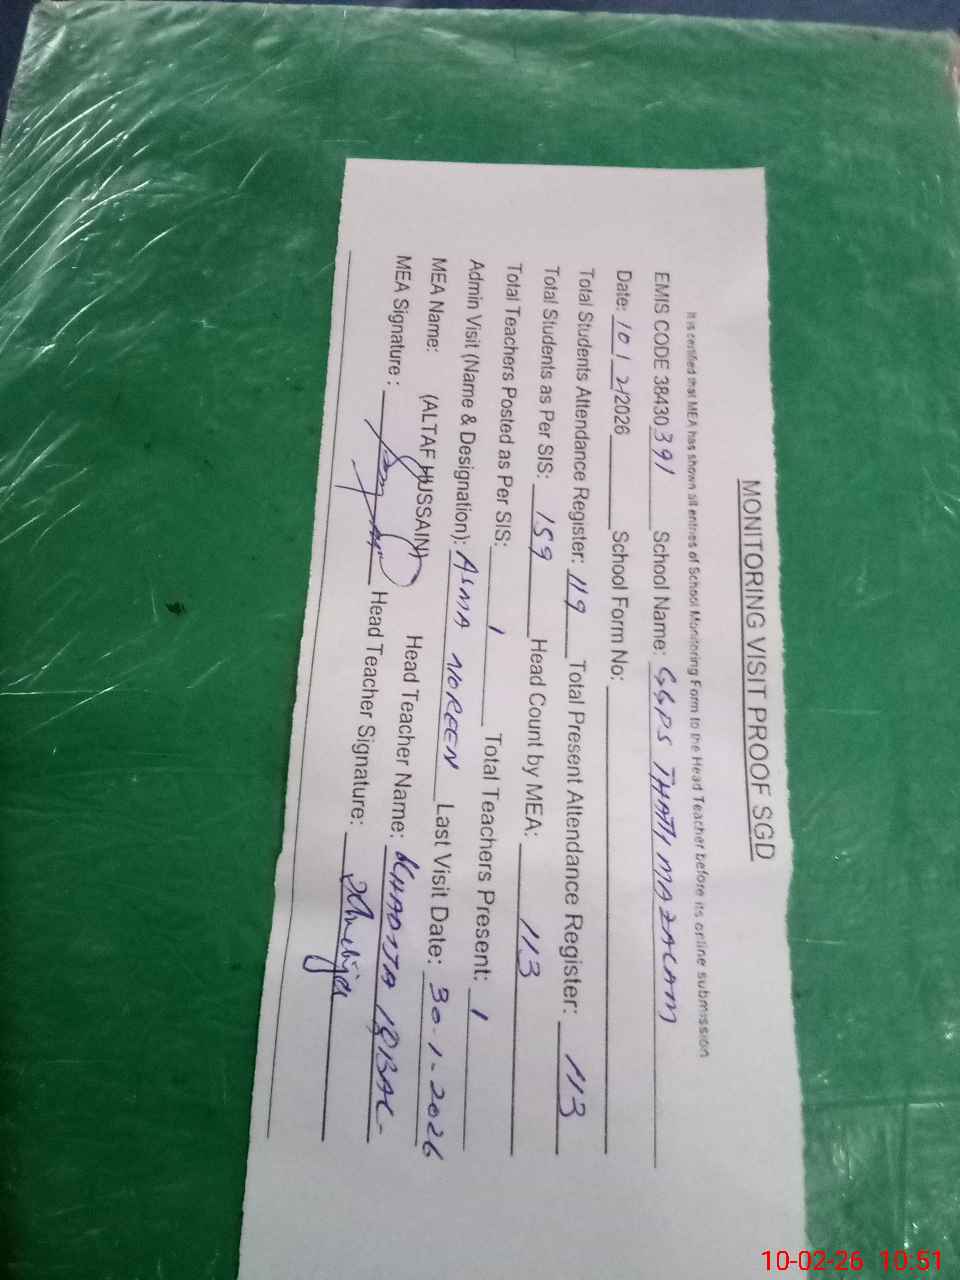 MONITORING VISIT PROOF SGD
It is certified that MEA has shown all entries of School Monitoring Form to the Head Teacher before its online submission
EMIS CODE 38430391 School Name: GGPS THATI MAZALAM
Date: 10/2/2026 School Form No:
Total Students Attendance Register: 119 Total Present Attendance Register: 113
Total Students as Per SIS: 159 Head Count by MEA: 113
Total Teachers Posted as Per SIS: 1 Total Teachers Present: 1
Admin Visit (Name & Designation): ASMA NOREEN Last Visit Date: 30-1-2026
MEA Name: (ALTAF HUSSAIN) Head Teacher Name: IQBAL
MEA Signature: Head Teacher Signature:
10-02-26 10:51